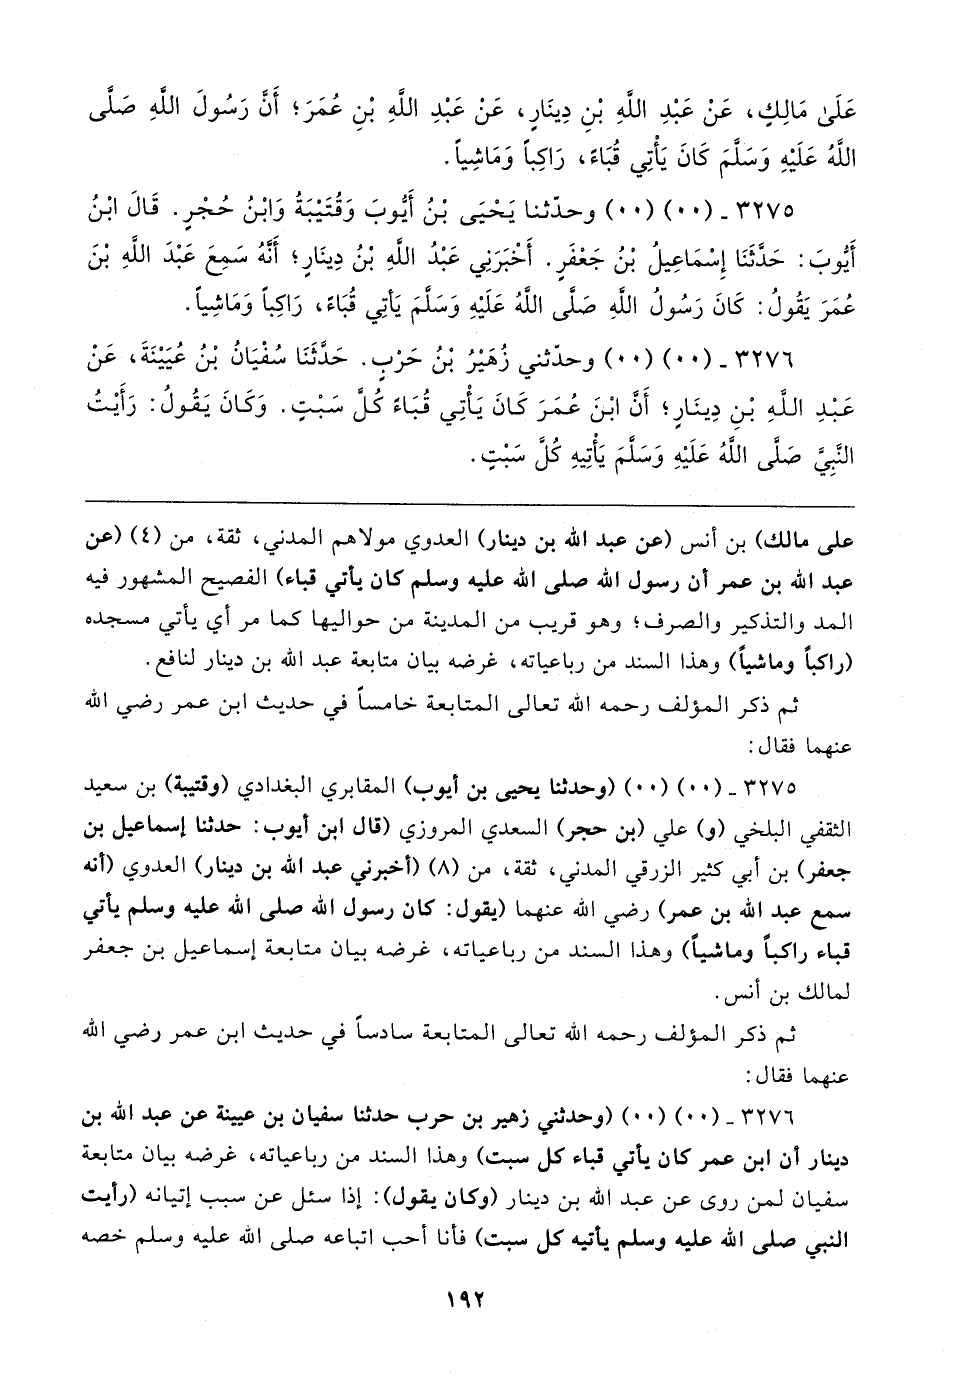 عَلَىٰ مَالِكٍ، عَنْ عَبْدِ اللَّهِ بْنِ دِينَارٍ، عَنْ عَبْدِ اللَّهِ بْنِ عُمَرَ؛ أَنَّ رَسُولَ اللَّهِ صَلَّى
اللَّهُ عَلَيْهِ وَسَلَّمَ كَانَ يَأْتِي قُبَاءً، رَاكِباً وَمَاشِياً.
٣٢٧٥ ـ (٠٠) (٠٠) وحدّثنا يَحْيَى بْنُ أَيُّوبَ وَقُتَيْبَةُ وَابْنُ حُجْرٍ. قَالَ ابْنُ
أَيُّوبَ: حَدَّثَنَا إِسْمَاعِيلُ بْنُ جَعْفَرٍ. أَخْبَرَنِي عَبْدُ اللَّهِ بْنُ دِينَارٍ؛ أَنَّهُ سَمِعَ عَبْدَ اللَّهِ بْنَ
عُمَرَ يَقُولُ: كَانَ رَسُولُ اللَّهِ صَلَّى اللَّهُ عَلَيْهِ وَسَلَّمَ يَأْتِي قُبَاءً، رَاكِباً وَمَاشِياً.
٣٢٧٦ ـ (٠٠) (٠٠) وحدّثني زُهَيْرُ بْنُ حَرْبٍ. حَدَّثَنَا سُفْيَانُ بْنُ عُيَيْنَةَ، عَنْ
عَبْدِ اللَّهِ بْنِ دِينَارٍ؛ أَنَّ ابْنَ عُمَرَ كَانَ يَأْتِي قُبَاءً كُلَّ سَبْتٍ. وَكَانَ يَقُولُ: رَأَيْتُ
النَّبِيَّ صَلَّى اللَّهُ عَلَيْهِ وَسَلَّمَ يَأْتِيهِ كُلَّ سَبْتٍ.
على مالك) بن أنس (عن عبد الله بن دينار) العدوي مولاهم المدني، ثقة، من (٤) (عن
عبد الله بن عمر أن رسول الله صلى الله عليه وسلم كان يأتي قباء) الفصيح المشهور فيه
المد والتذكير والصرف؛ وهو قريب من المدينة من حواليها كما مر أي يأتي مسجده
(راكباً وماشياً) وهذا السند من رباعياته، غرضه بيان متابعة عبد الله بن دينار لنافع.
ثم ذكر المؤلف رحمه الله تعالى المتابعة خامساً في حديث ابن عمر رضي الله
عنهما فقال:
٣٢٧٥ ـ (٠٠) (٠٠) (وحدثنا يحيى بن أيوب) المقابري البغدادي (وقتيبة) بن سعيد
الثقفي البلخي (و) علي (بن حجر) السعدي المروزي (قال ابن أيوب: حدثنا إسماعيل بن
جعفر) بن أبي كثير الزرقي المدني، ثقة، من (٨) (أخبرني عبد الله بن دينار) العدوي (أنه
سمع عبد الله بن عمر) رضي الله عنهما (يقول: كان رسول الله صلى الله عليه وسلم يأتي
قباء راكباً وماشياً) وهذا السند من رباعياته، غرضه بيان متابعة إسماعيل بن جعفر
لمالك بن أنس.
ثم ذكر المؤلف رحمه الله تعالى المتابعة سادساً في حديث ابن عمر رضي الله
عنهما فقال:
٣٢٧٦ ـ (٠٠) (٠٠) (وحدثني زهير بن حرب حدثنا سفيان بن عيينة عن عبد الله بن
دينار أن ابن عمر كان يأتي قباء كل سبت) وهذا السند من رباعياته، غرضه بيان متابعة
سفيان لمن روى عن عبد الله بن دينار (وكان يقول): إذا سئل عن سبب إتيانه (رأيت
النبي صلى الله عليه وسلم يأتيه كل سبت) فأنا أحب اتباعه صلى الله عليه وسلم خصه
١٩٢